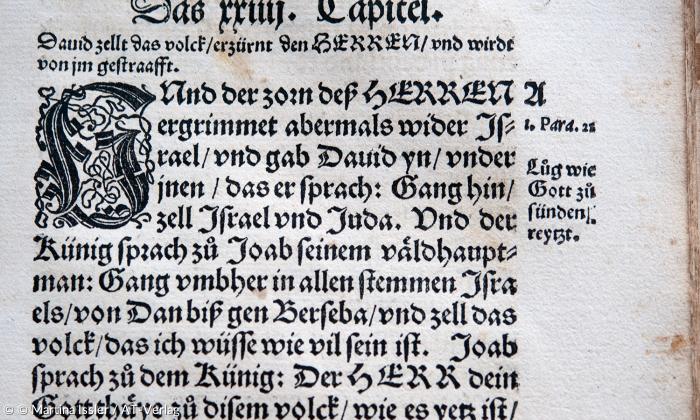 Das xxiiij. Capitel.
Dauid zellt das volck/erzürnt den HERREN/vnd wirdt
von jm gestraafft.
VNnd der zorn deß HERREN
ergrimmet abermals wider Js⸗
rael/vnd gab Dauid yn/vnder
jnen / das er sprach: Gang hin/
zell Jsrael vnd Juda. Vnd der
Künig sprach zů Joab seinem väldhaupt⸗
man: Gang vmbher in allen stemmen Jsra
els/von Dan biß gen Berseba/vnd zell das
volck/das ich wüsse wie vil sein ist. Joab
sprach zů dem Künig: Der HERR dein
Gott thüe zů disem volck/ wie es yetz ist/
A
1. Para. 21
Lůg wie
Gott zů
sünden
reytzt.
© Martina Issler / AT-Verlag